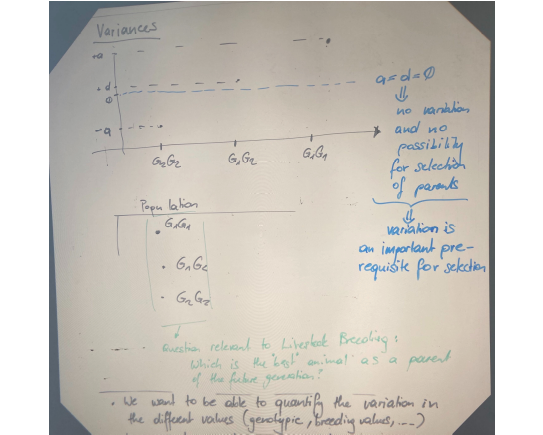 Variances
+a
+d
0
-a
G₂G₂ G₁G₂ G₁G₁
a = d = 0
⇓
no variation
and no
possibility
for selection
of parents
⇓
variation is
an important pre-
requisite for selection
Population
G₁G₁
G₁G₂
G₂G₂
Question relevant to Livestock Breeding:
Which is the "best" animal as a parent
of the future generation?
• We want to be able to quantify the variation in
the different values (genotypic, breeding values, ....)